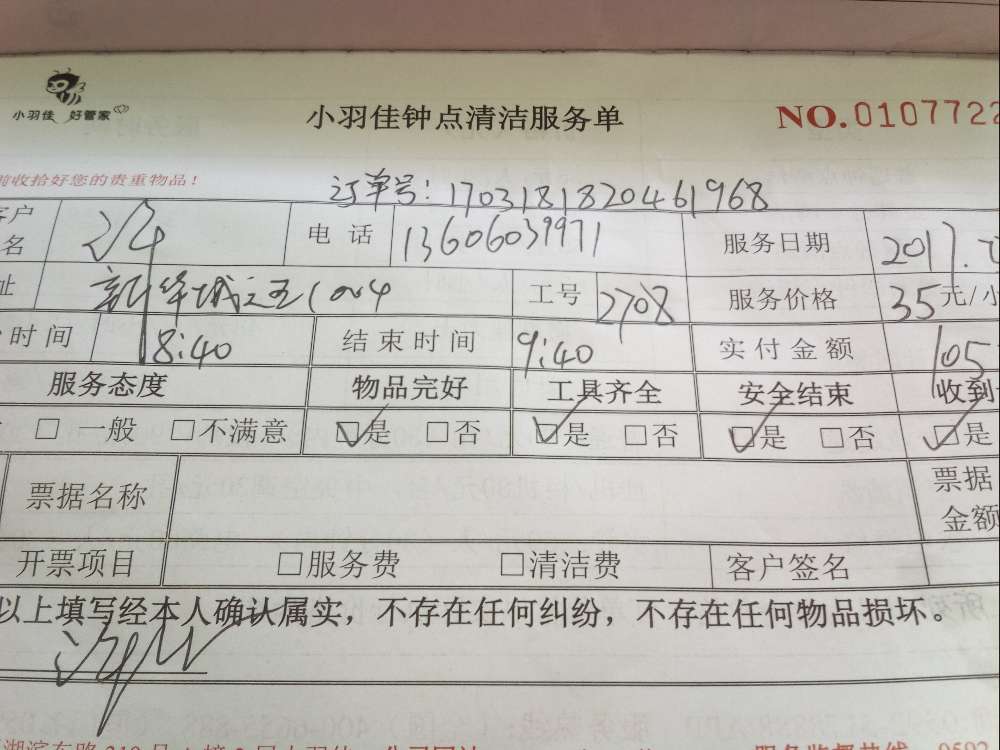 小羽佳 好管家
小羽佳钟点清洁服务单
NO.0107722
前收拾好您的贵重物品！
订单号：170318182046196​8
客户
名
电话 13606039971 服务日期 2017.
址
工号 2708 服务价格 35元/小
时间 8:40 结束时间 9:40 实付金额 105
服务态度 物品完好 工具齐全 安全结束 收到
□一般 □不满意 ☑是 □否 ☑是 □否 ☑是 □否 ☑是
票据名称 票据
金额
开票项目 □服务费 □清洁费 客户签名
以上填写经本人确认属实，不存在任何纠纷，不存在任何物品损坏。